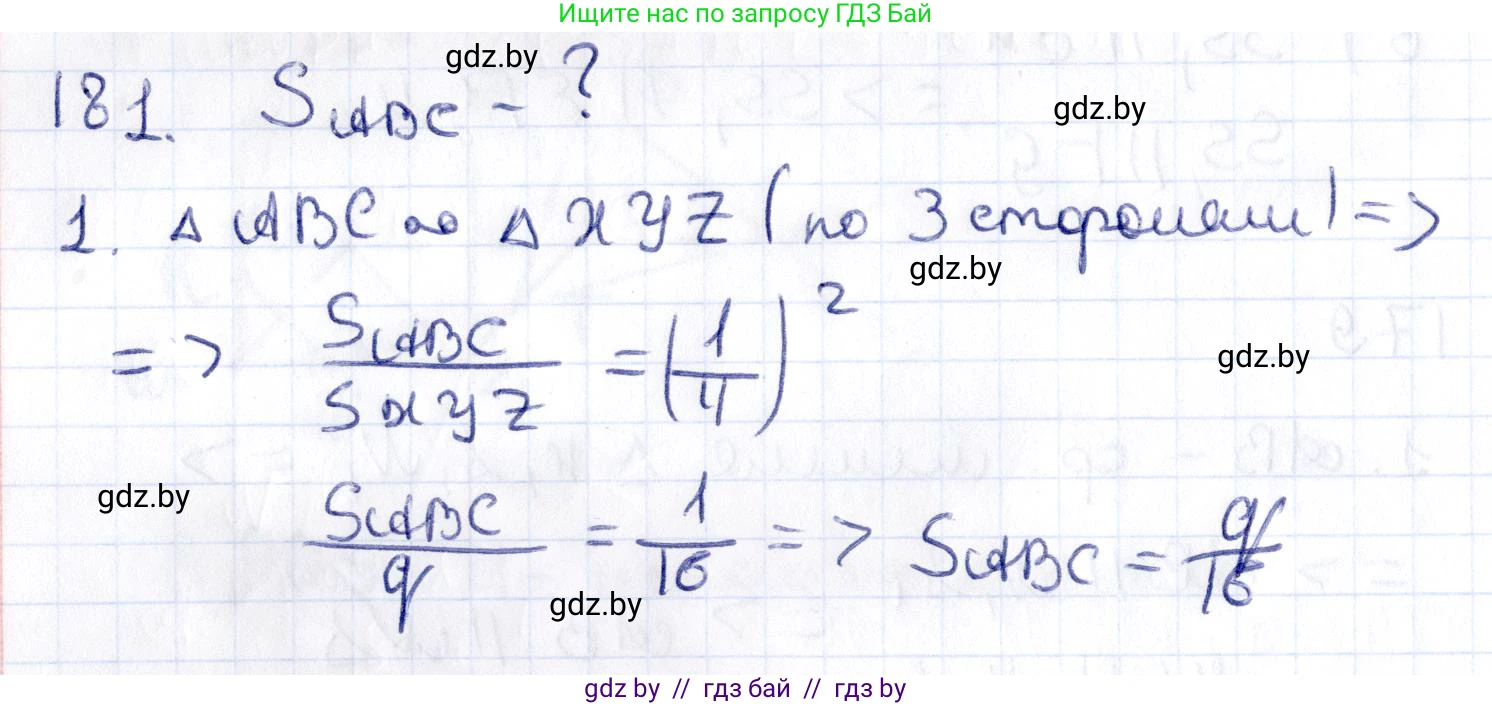 Ищите нас по запросу ГДЗ Бай
gdz.by
181. S ABC - ?
gdz.by
1. Δ ABC ∾ Δ XYZ (по 3 сторонам) =>
gdz.by
=> S ABC / S XYZ = (1/4)²
gdz.by
gdz.by
S ABC / q = 1/16 => S ABC = q/16
gdz.by
gdz.by // гдз бай // гдз by